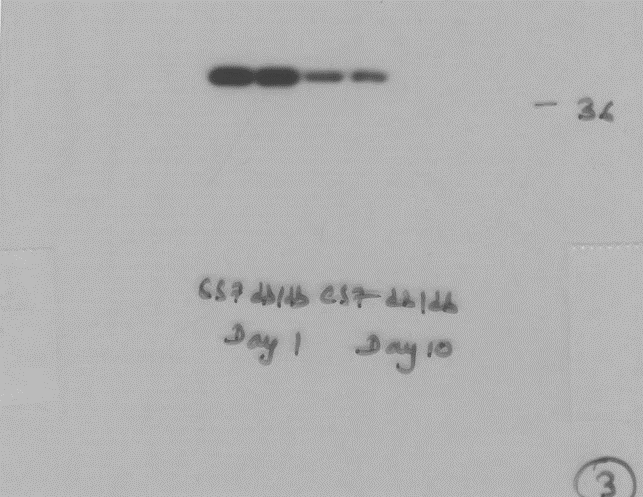 – 36
C57 db/db C57 db/db
Day 1 Day 10
3